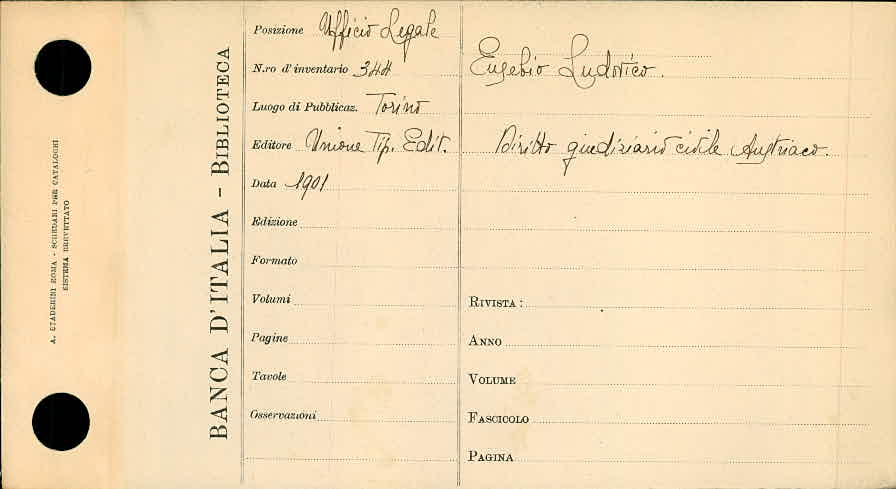 A. STADERINI ROMA - SCHEDARI PER CATALOGHI
SISTEMA BREVETTATO
BANCA D'ITALIA - BIBLIOTECA
Posizione Ufficio Legale
N.ro d'inventario 344
Luogo di Pubblicaz. Torino
Editore Unione Tip. Edit.
Data 1901
Edizione
Formato
Volumi
Pagine
Tavole
Osservazioni
Eusebio Ludovico.
Diritto giudiziario civile Austriaco.
RIVISTA:
ANNO
VOLUME
FASCICOLO
PAGINA